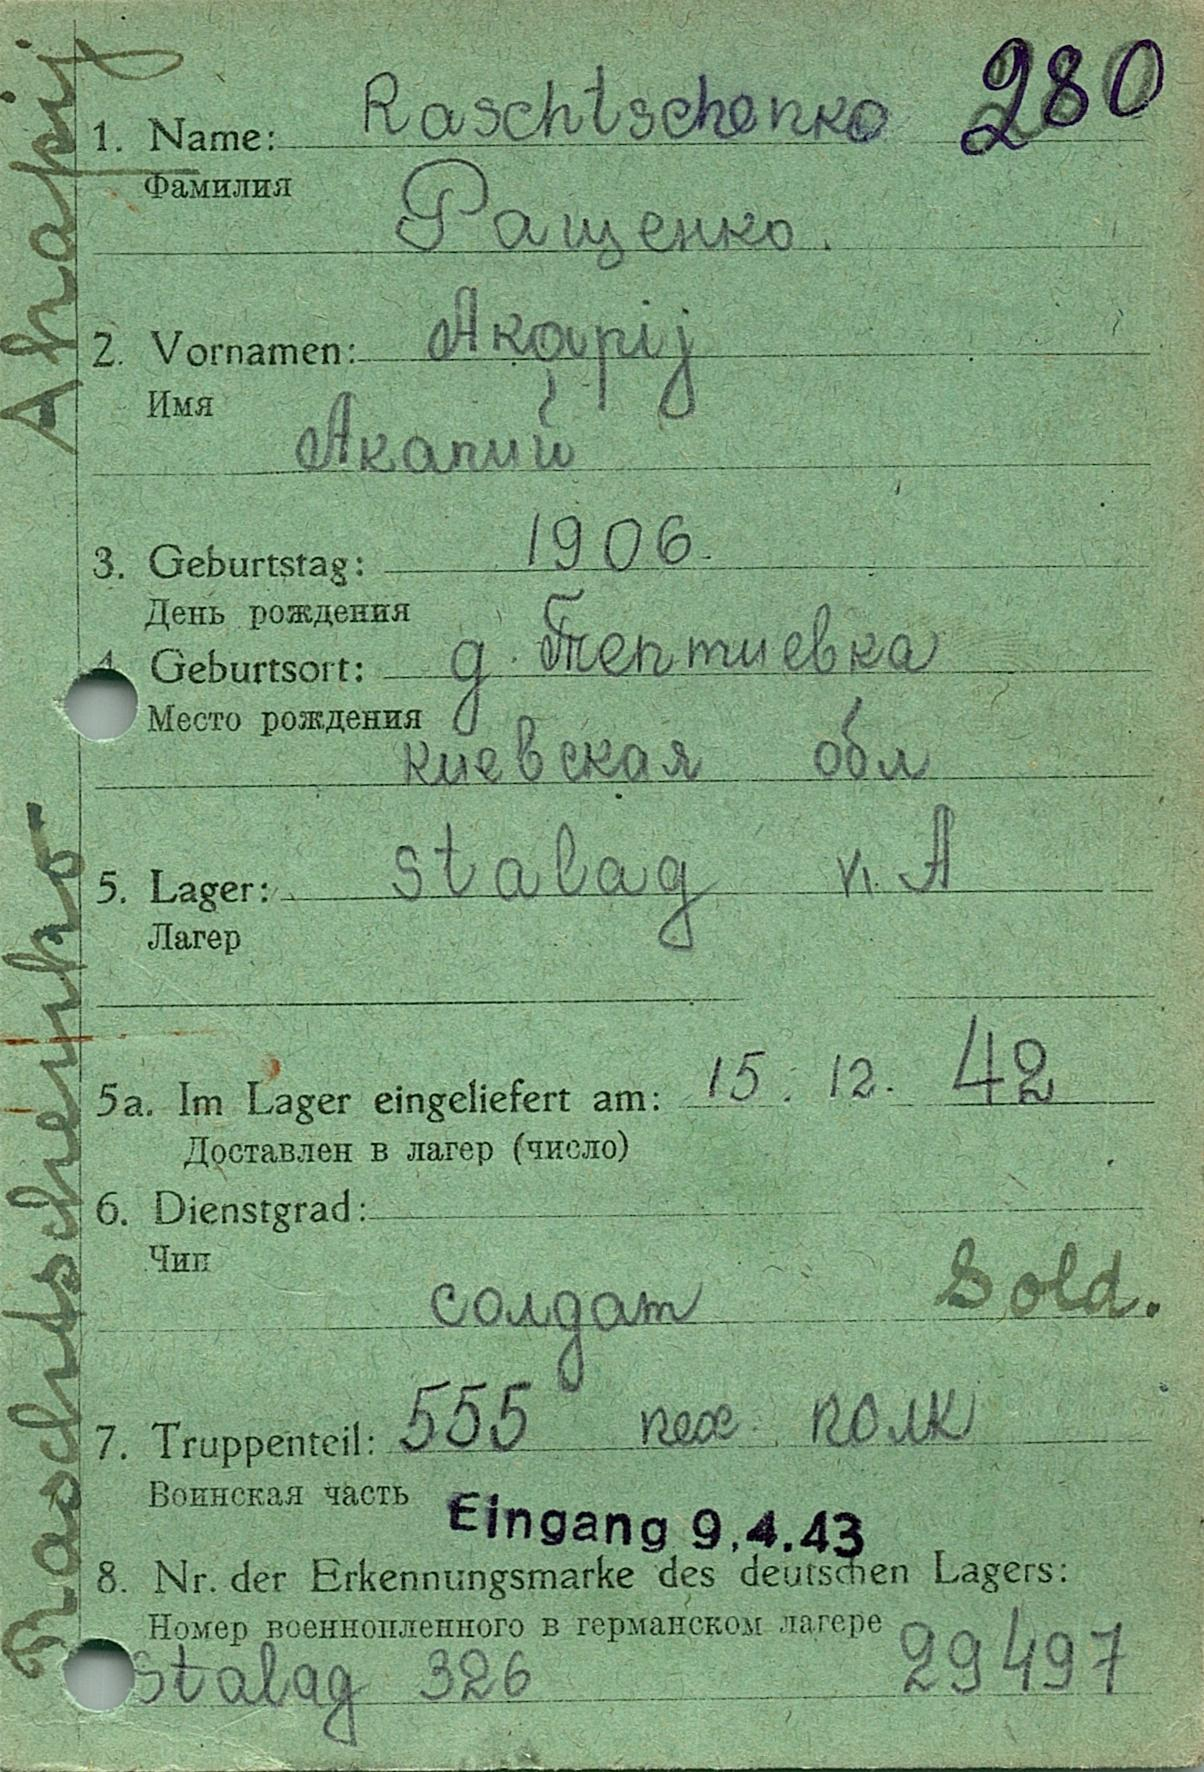 280
1. Name: Raschtschenko
Фамилия
Ращенко.
2. Vornamen: Akapij
Имя
Акапий
3. Geburtstag: 1906.
День рождения
4. Geburtsort: д. Тептиевка
Место рождения
киевская обл
5. Lager: Stalag VI. A
Лагер
5a. Im Lager eingeliefert am: 15. 12. 42
Доставлен в лагер (число)
6. Dienstgrad:
Чип
солдат Sold.
7. Truppenteil: 555 пех. полк
Воинская часть
Eingang 9.4.43
8. Nr. der Erkennungsmarke des deutschen Lagers:
Номер военнопленного в германском лагере
Stalag 326 29497
Raschtschenko Akapij